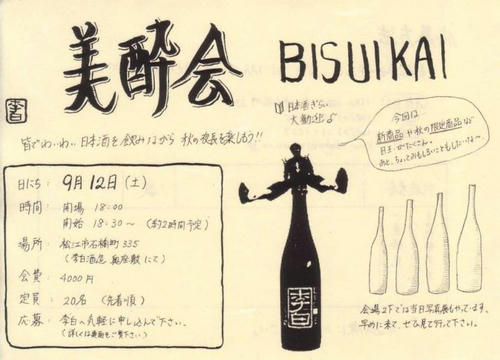 美酔会 BISUIKAI
李白
日本酒ぎらい
大歓迎♪
今回は
新商品や秋の限定商品など
目玉がたくさん。
あと、ちょっとおもしろいこともしたいな〜
皆でわいわい 日本酒を飲みながら 秋の夜長を楽しもう!!
日にち: 9月12日(土)
時間: 開場 18:00
開始 18:30〜 (約2時間予定)
場所: 松江市石橋町335
(李白酒造 にて)
会費: 4000円
定員: 20名 (先着順)
応募: 李白へ気軽に申し込んで下さい。
(詳しくは裏面をご覧下さい)
李白
会場2Fでは当日写真展もやっています。
早めに来て、ぜひ見て行って下さい。